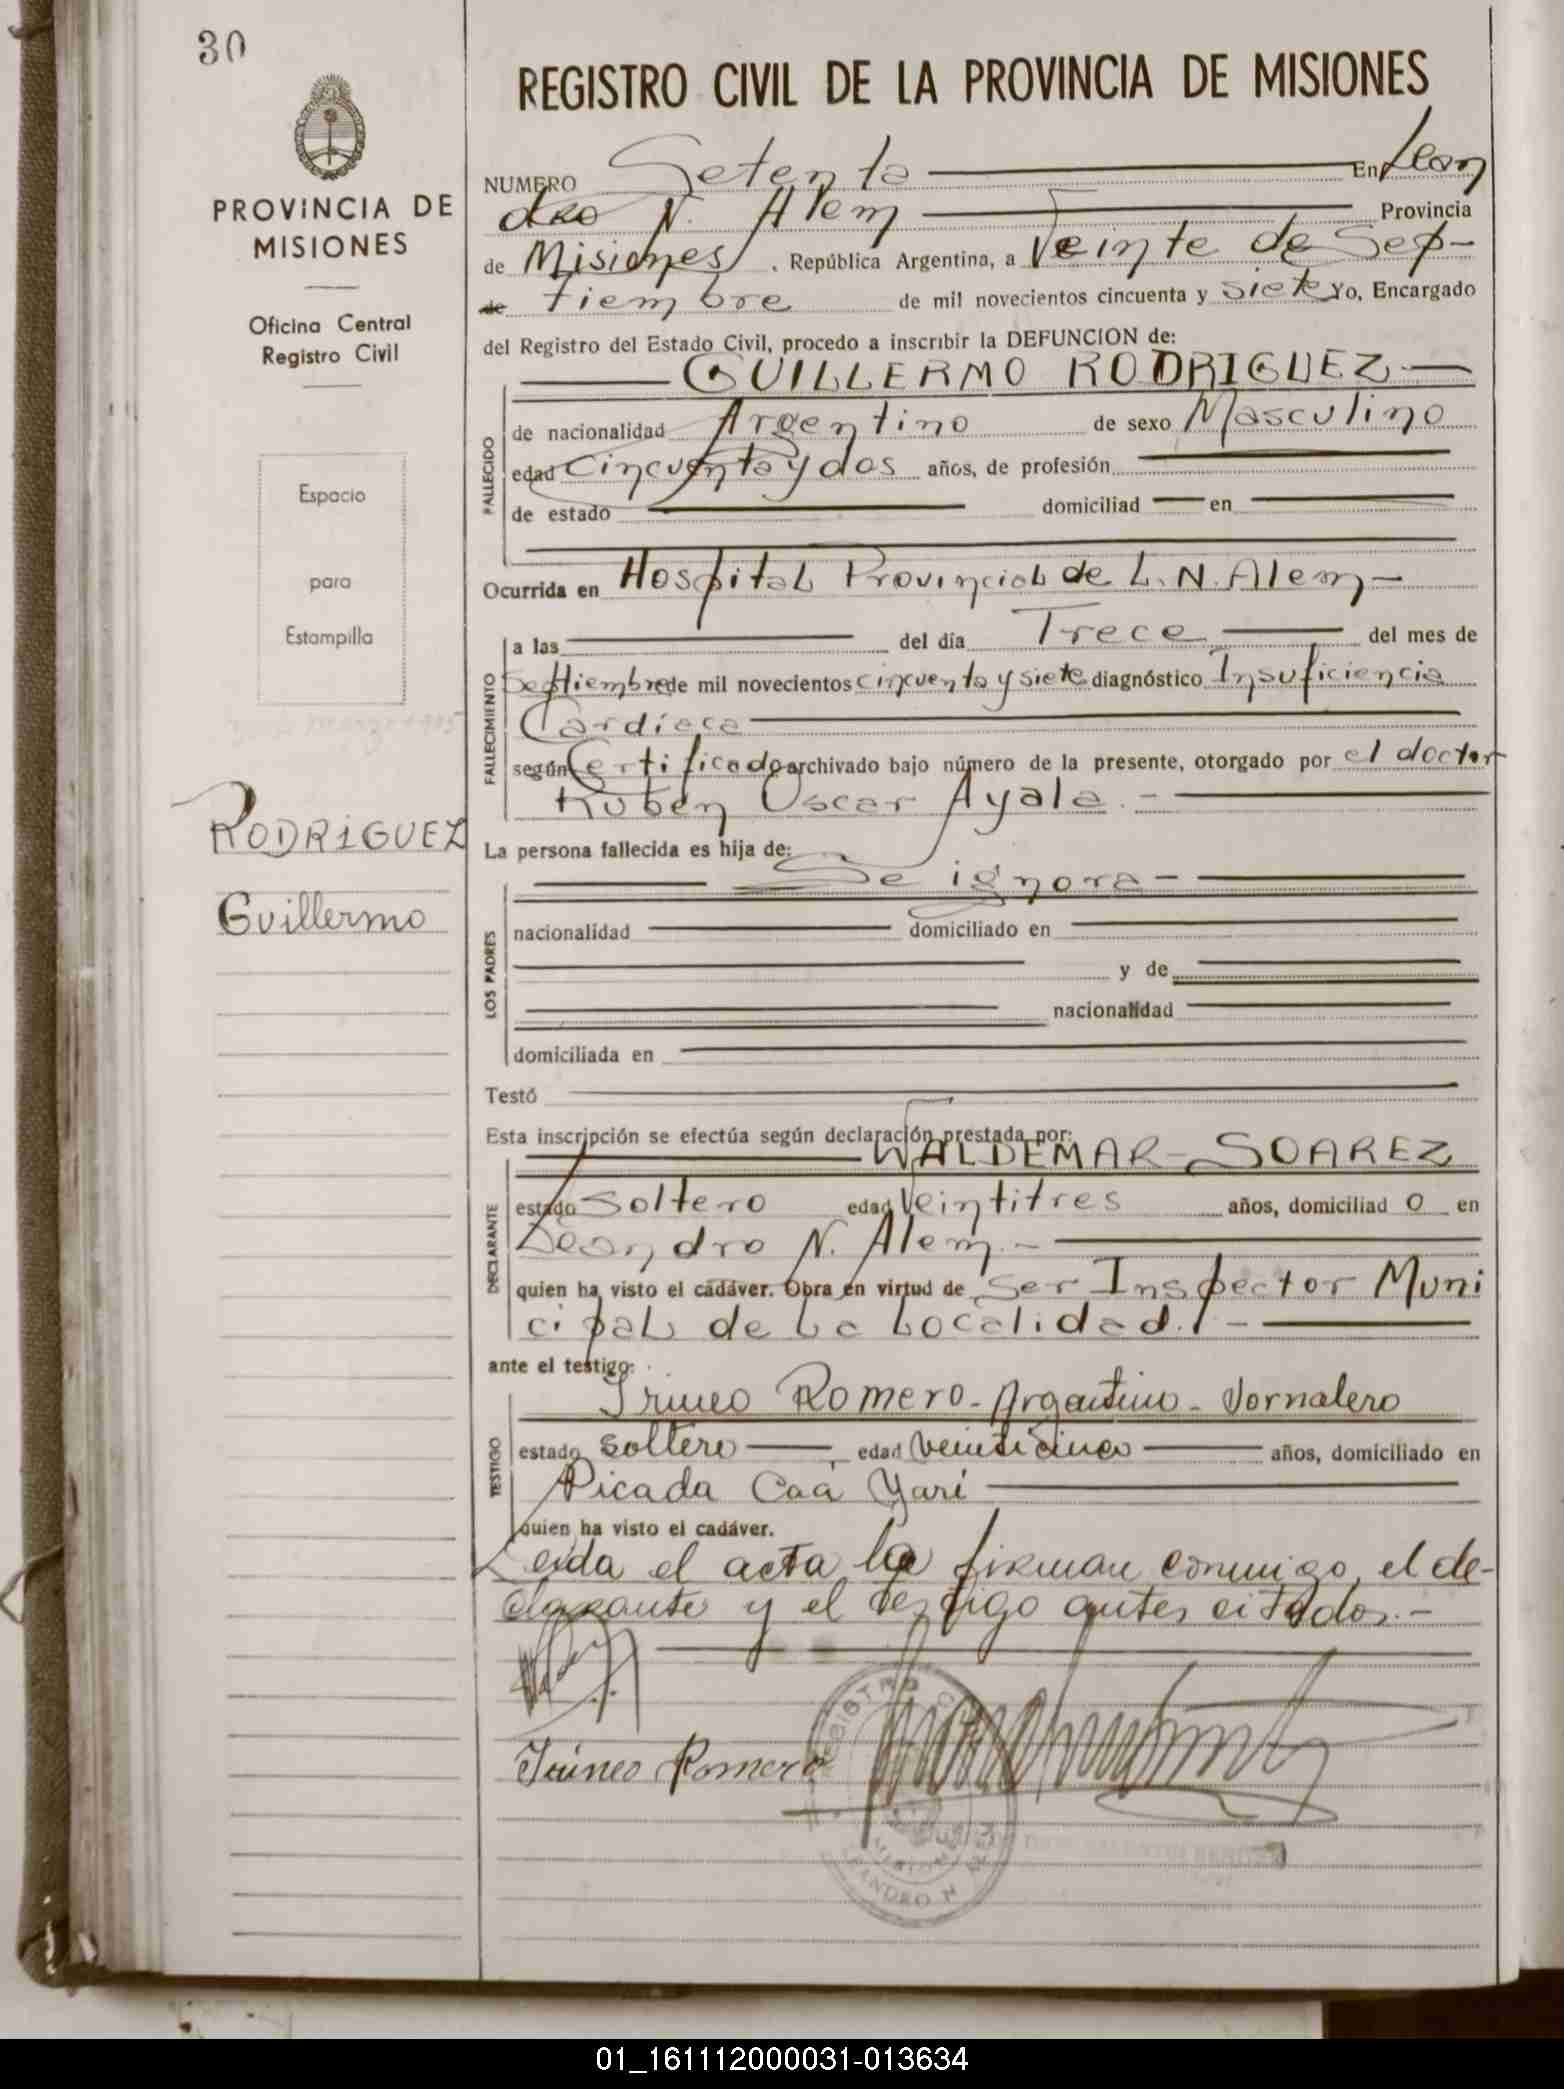 30
PROVINCIA DE
MISIONES
Oficina Central
Registro Civil
Espacio
para
Estampilla
RODRIGUEZ
Guillermo
REGISTRO CIVIL DE LA PROVINCIA DE MISIONES
NUMERO Setenta En Lean
dro N. Alem Provincia
de Misiones, República Argentina, a Veinte de Sep-
de tiembre de mil novecientos cincuenta y siete Yo, Encargado
del Registro del Estado Civil, procedo a inscribir la DEFUNCION de:
GUILLERMO RODRIGUEZ
FALLECIDO
de nacionalidad Argentino de sexo Masculino
edad Cincuenta y dos años, de profesión
de estado domiciliad en
Ocurrida en Hospital Provincial de L. N. Alem-
FALLECIMIENTO
a las del día Trece del mes de
Septiembre de mil novecientos cincuenta y siete diagnóstico Insuficiencia
Cardíaca
según Certificado archivado bajo número de la presente, otorgado por el doctor
Ruben Oscar Ayala.-
La persona fallecida es hija de:
Se ignora-
LOS PADRES
nacionalidad domiciliado en
y de
nacionalidad
domiciliada en
Testó
Esta inscripción se efectúa según declaración prestada por:
WALDEMAR SOAREZ
DECLARANTE
estado Soltero edad Veintitres años, domiciliad o en
Leandro N. Alem.-
quien ha visto el cadáver. Obra en virtud de Ser Inspector Muni
cipal de la Localidad.-
ante el testigo:
Irineo Romero - Argentino - Jornalero
TESTIGO
estado Soltero edad Veinticinco años, domiciliado en
Picada Caá Yarí
quien ha visto el cadáver.
Leída el acta la firman conmigo, el de-
clarante y el testigo antes citados.-
Irineo Romero
REGISTRO
MISIONES
LEANDRO N.
01_161112000031-013634